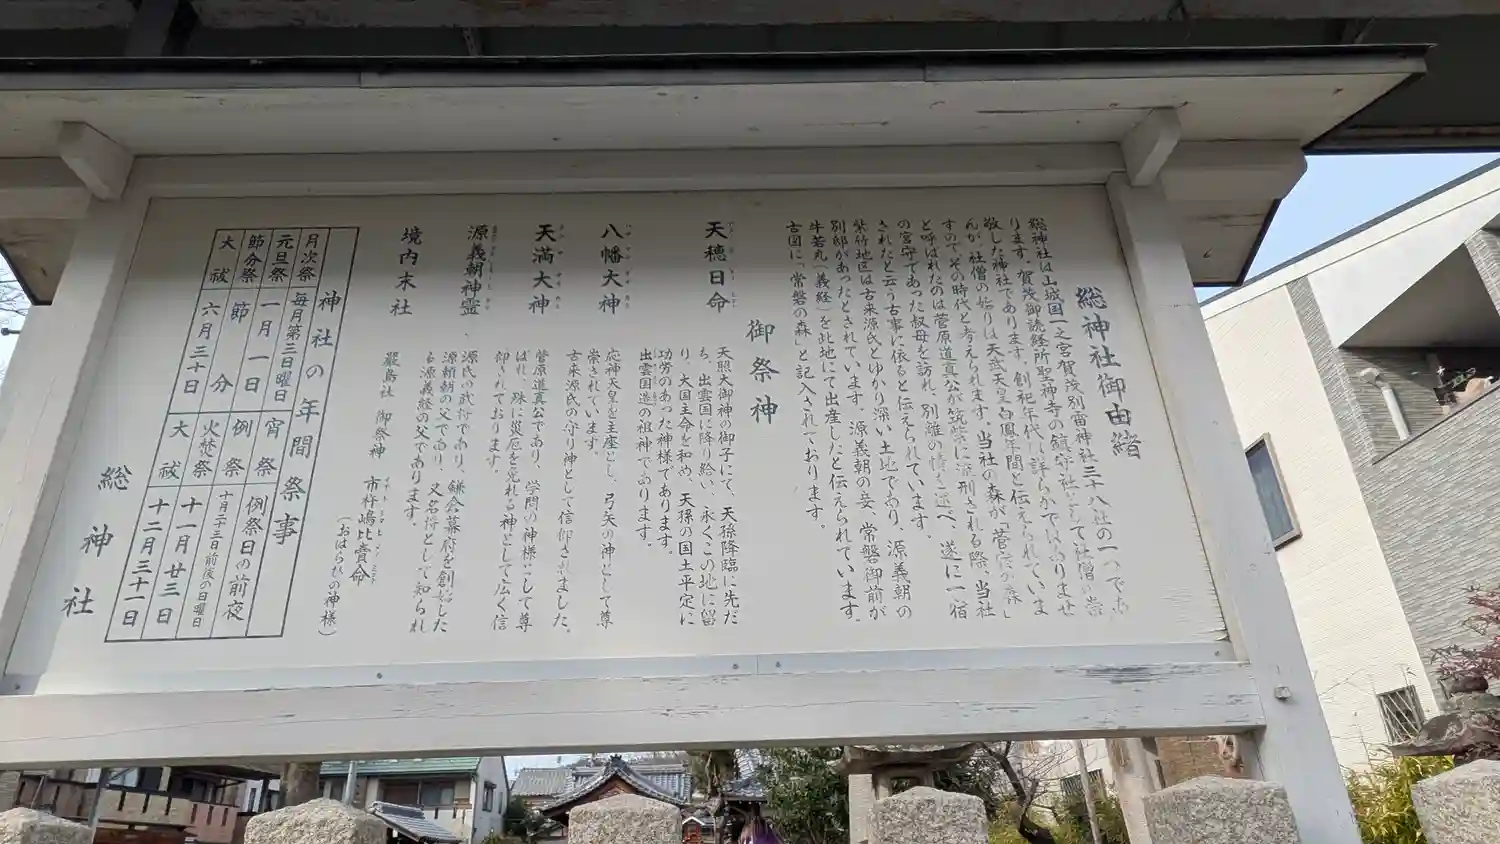 総神社御由緒
総神社は山城国一之宮賀茂別雷神社三十八社の一つであ
ります。賀茂御読経所聖神寺の鎮守社として社僧の崇
敬した神社であります。創祀年代は詳らかではありませ
んが、社僧の始りは天武天皇白鳳年間と伝えられていま
すのでその時代と考えられます。当社の森が「菅宿の森」
と呼ばれたのは菅原道真公が筑紫に流刑される際、当社
の宮守であった叔母を訪れ、別離の情を述べ、遂に一宿
されたと云う古事に依ると伝えられています。
紫竹地区は古来源氏とゆかり深い土地であり、源義朝の
別邸があったとされています。源義朝の妾、常磐御前が
牛若丸(義経)を此地にて出産したと伝えられています。
古図に「常磐の森」と記入されております。
御祭神
天穂日命
天照大御神の御子にて、天孫降臨に先だ
ち、出雲国に降り給い、永くこの地に留
り、大国主命を和め、天孫の国土平定に
功労のあった神様であります。
出雲国造の祖神であります。
八幡大神
応神天皇を主座とし、弓矢の神として尊
崇されています。
古来源氏の守り神として信仰されました。
天満大神
菅原道真公であり、学問の神様として尊
ばれ、殊に災厄を免れる神として広く信
仰されております。
源義朝神霊
源氏の武将であり、鎌倉幕府を創始した
源頼朝の父であり、又名将として知られ
る源義経の父であります。
境内末社
嚴島社 御祭神 市杵嶋比賣命
(おはらひの神様)
神社の年間祭事
月次祭 毎月第三日曜日 宵祭 例祭日の前夜
元旦祭 一月一日 例祭 十月二十三日前後の日曜日
節分祭 節分 火焚祭 十一月廿三日
大祓 六月三十日 大祓 十二月三十一日
総神社